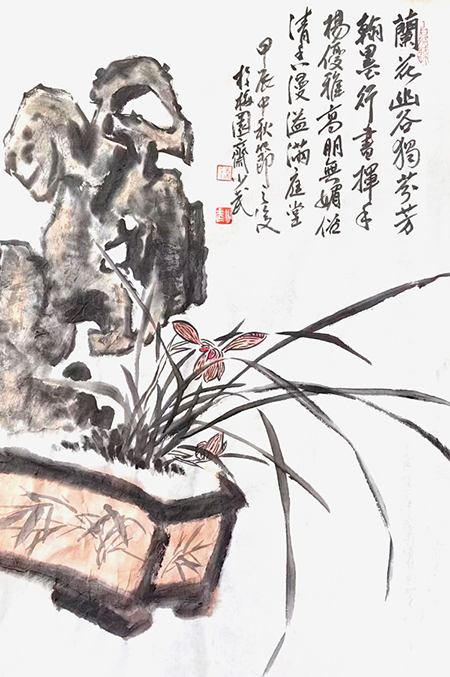 蘭花幽谷獨芬芳
翰墨行書揮手
楊優雅高明無媚俗
清香漫溢滿庭堂
甲辰中秋節之後
於梅園齋